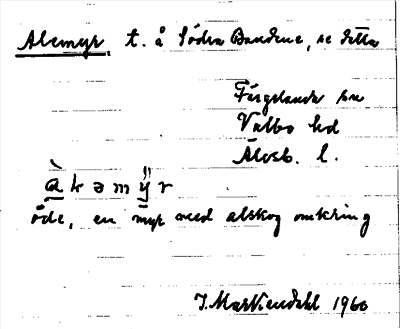 Alemyr t. å Södra Bandene, se detta
Färgelanda sn
Valbo hd
Älvsb. l.
àləmÿr
öde, en myr med alskog omkring
J. Markiendahl 1960